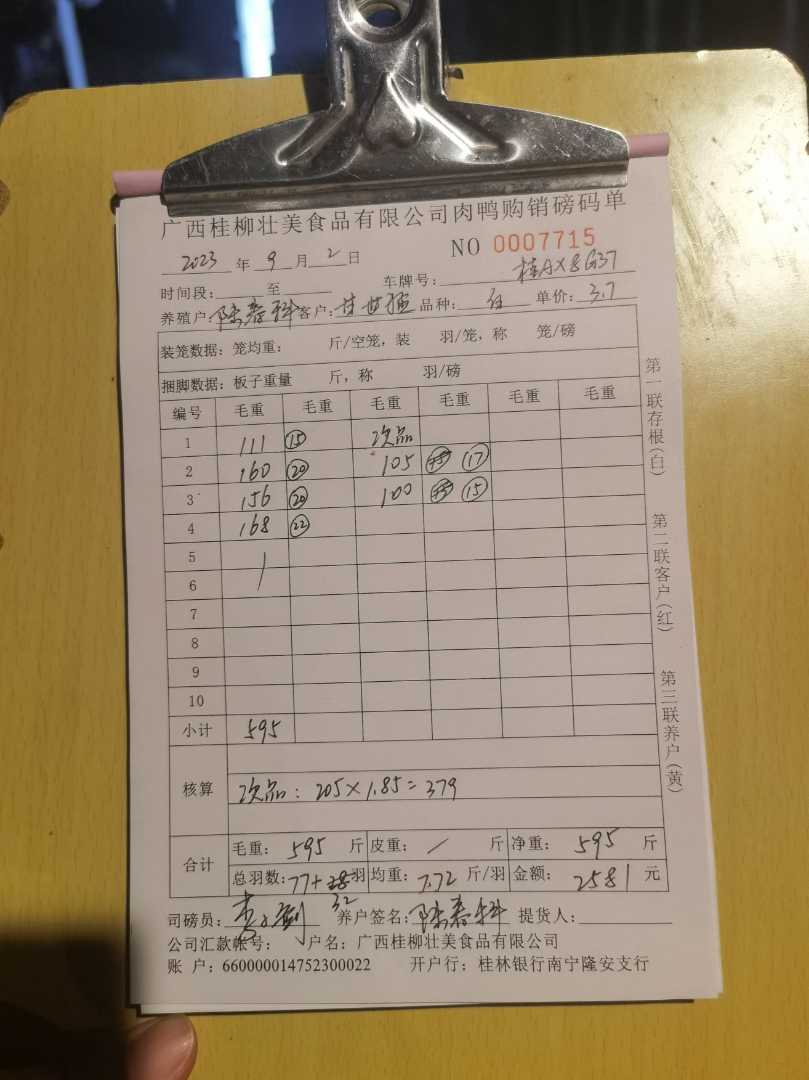 广西桂柳壮美食品有限公司肉鸭购销磅码单
NO 0007715
2023 年 9 月 2 日
时间段: 至 车牌号: 桂AX8G37
养殖户: 陆春科 客户: 品种: 白 单价: 3.7
装笼数据: 笼均重: 斤/空笼, 装 羽/笼, 称 笼/磅
捆脚数据: 板子重量 斤, 称 羽/磅
编号 毛重 毛重 毛重 毛重 毛重 毛重
1 111 15 次品
2 160 20 105 17
3 156 20 100 15
4 168 22
5
6
7
8
9
10
小计 595
核算 次品: 205×1.85=379
合计 毛重: 595 斤 皮重: / 斤 净重: 595 斤
总羽数: 77+ 32 羽 均重: 7.72 斤/羽 金额: 2581 元
司磅员: 养户签名: 陆春科 提货人:
公司汇款帐号: 户名: 广西桂柳壮美食品有限公司
账 户: 660000014752300022 开户行: 桂林银行南宁隆安支行
第一联存根(白)
第二联客户(红)
第三联养户(黄)